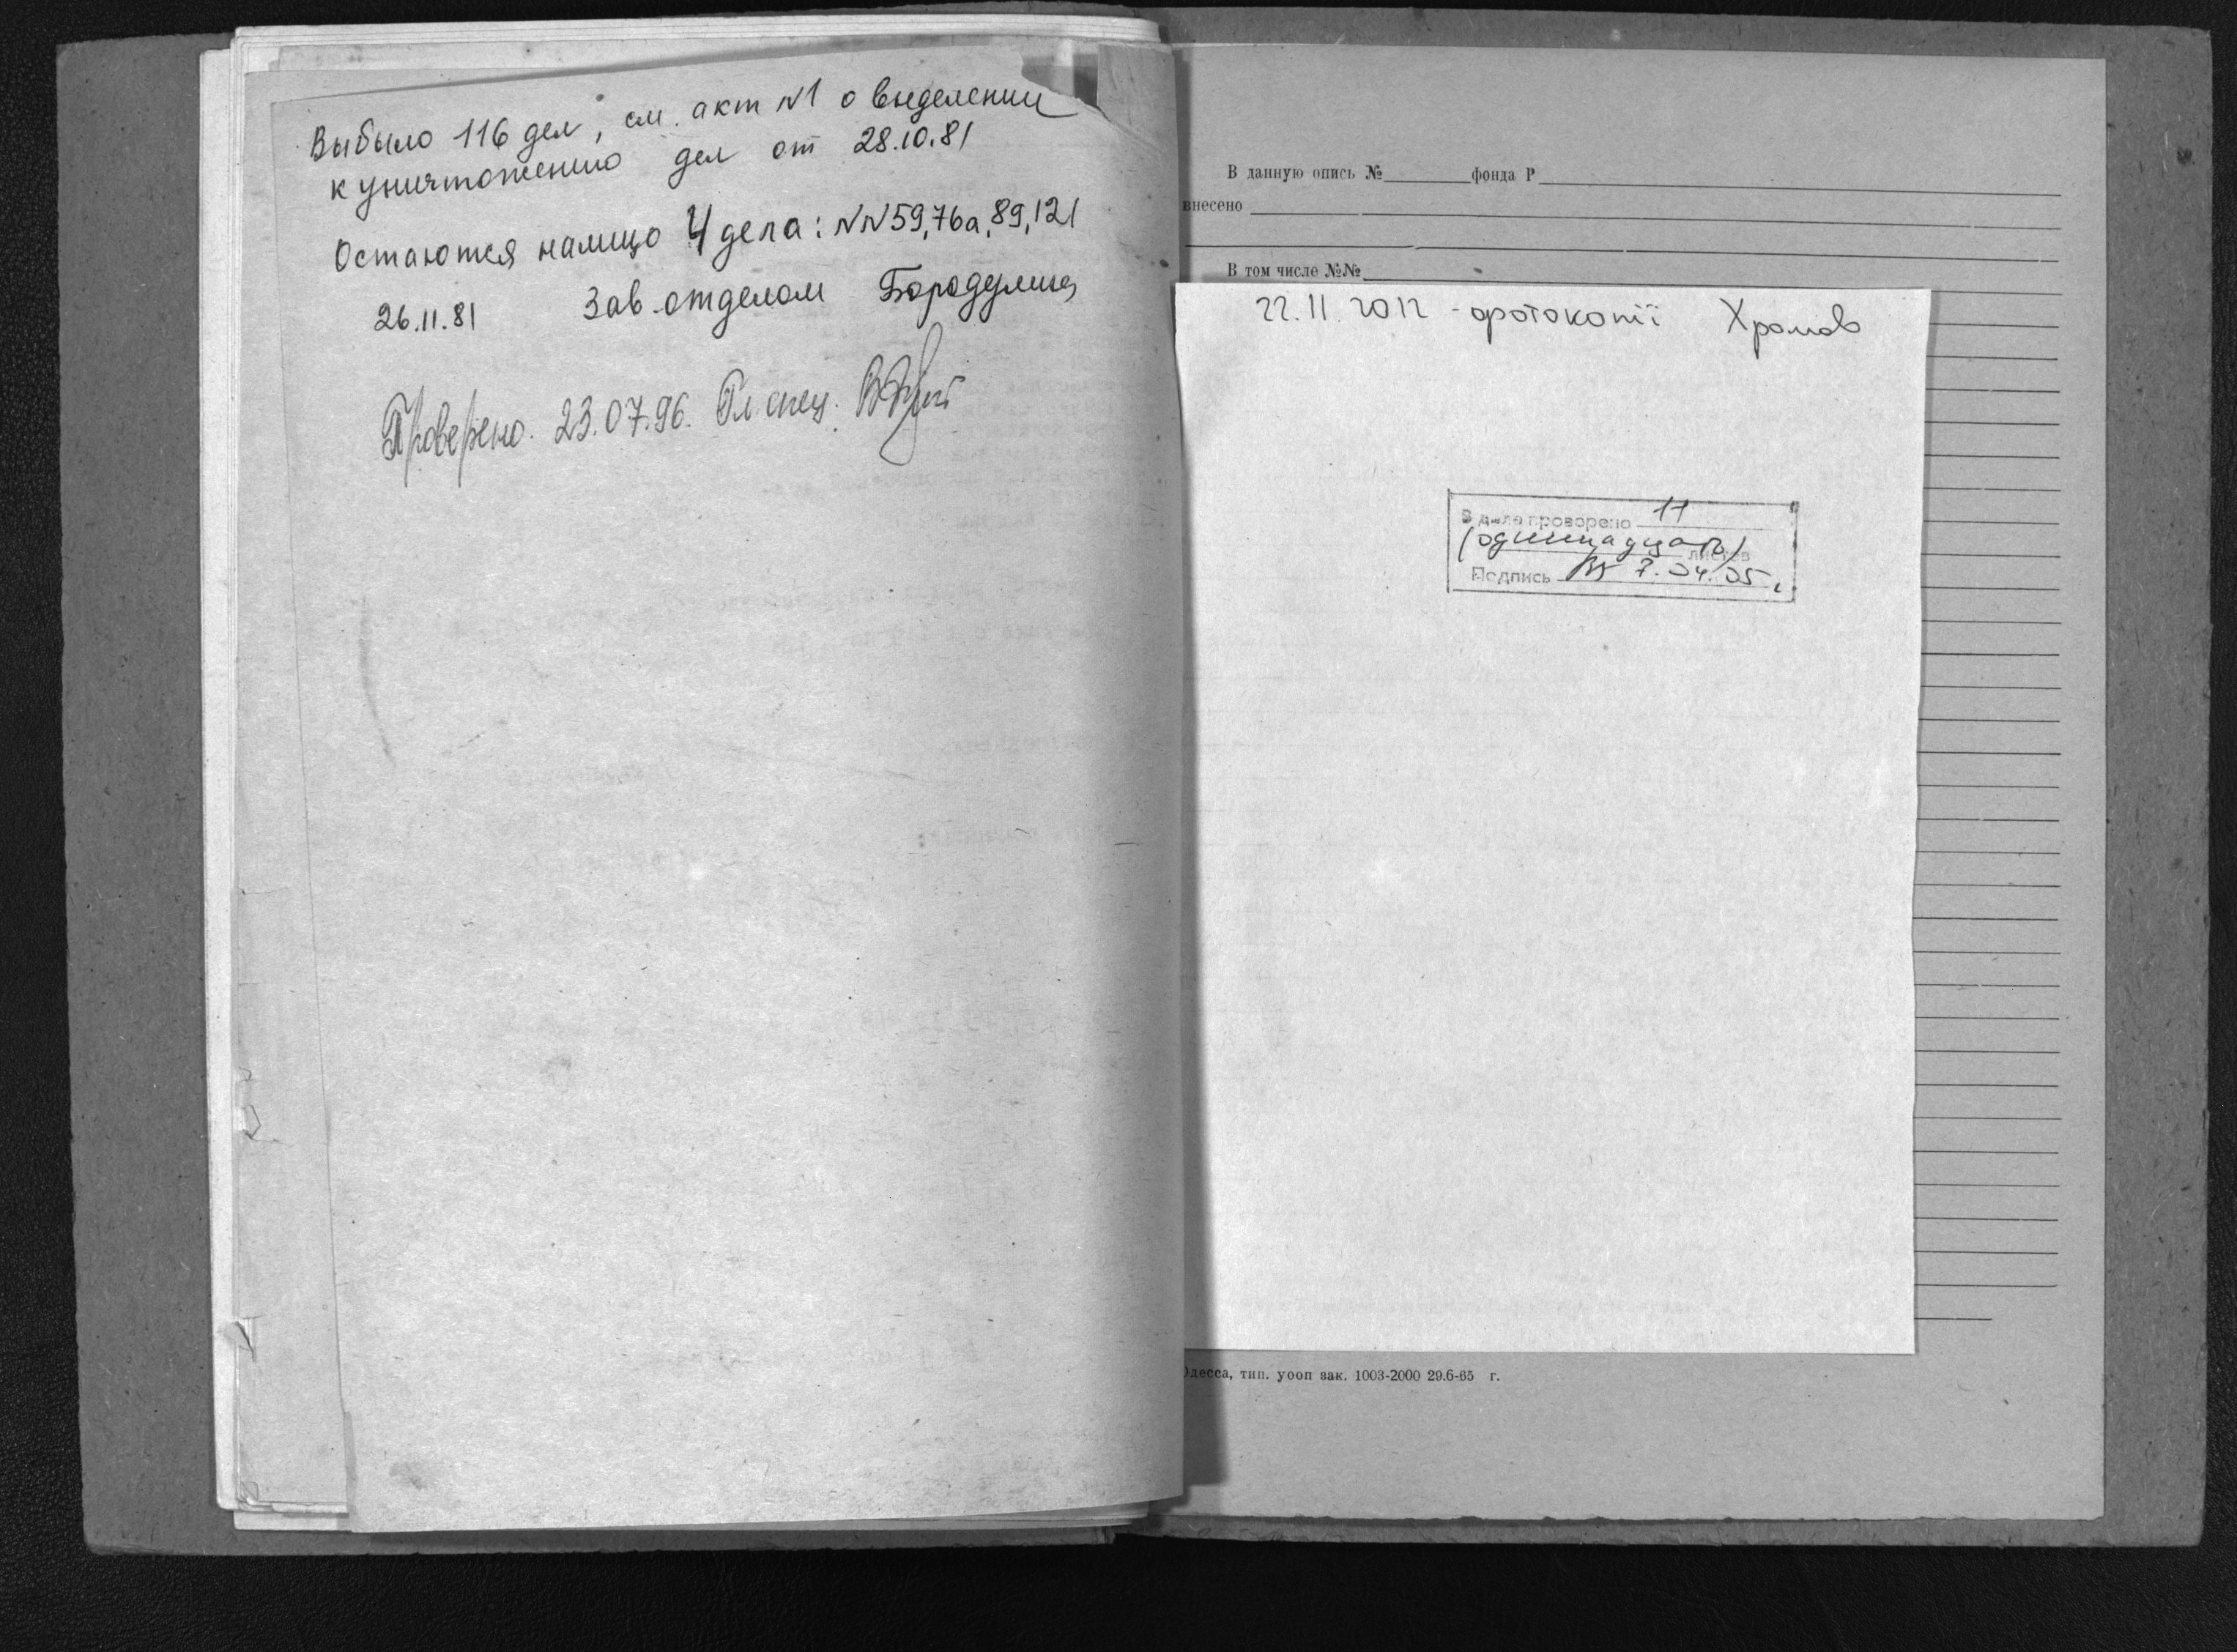 Выбыло 116 дел, см. акт №1 о выделении
к уничтожению дел от 28.10.81
Остаются налицо 4 дела: №№ 59, 76а, 89, 121
26.11.81 Зав. отделом Бородулина
Проверено. 23.07.96. Гл. спец.
В данную опись № фонда Р
внесено
В том числе №№
22.11.2012 - фотокопії Хромов
В деле проверено 11
(одиннадцать) листов
Подпись 7.04.05 г.
Одесса, тип. уооп зак. 1003-2000 29.6-65 г.